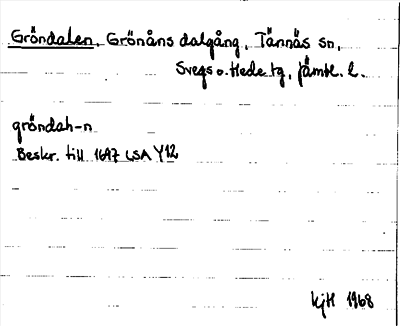 Gröndalen, Grönåns dalgång, Tännäs sn,
Svegs o. Hede tg, Jämtl. l.
gröndah-n
Beskr. till 1697 LSA Y12
kjH 1968